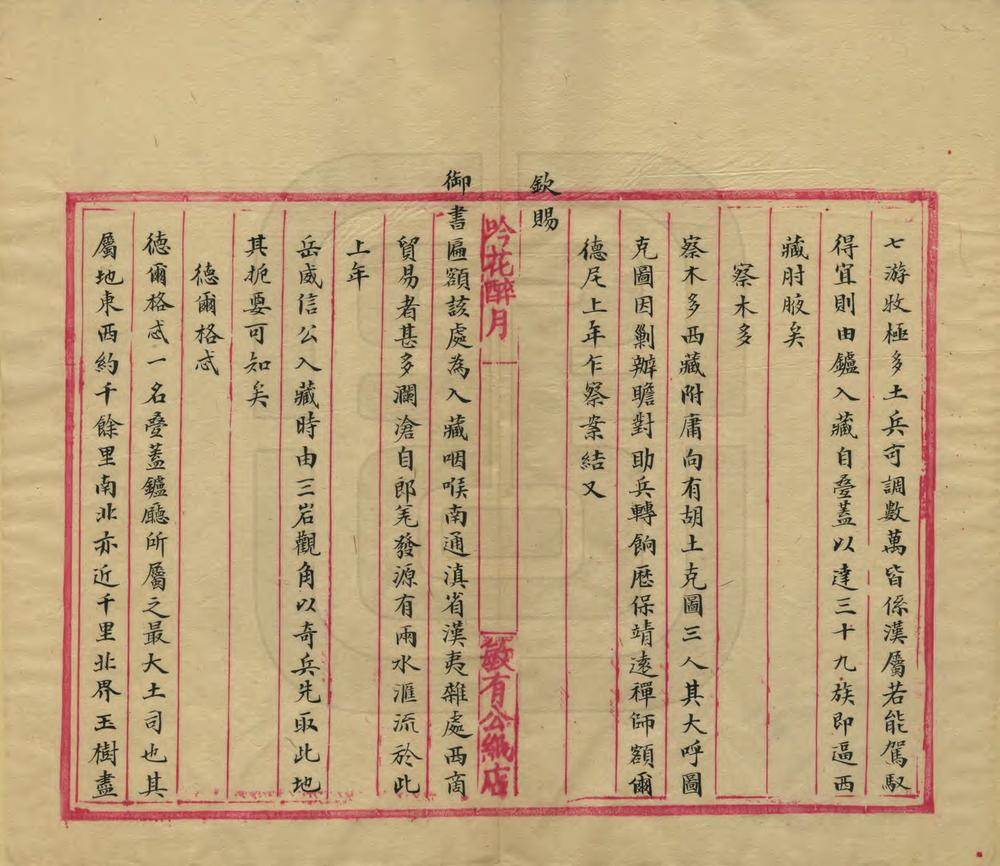 七游牧極多土兵可調數萬皆係漢屬若能駕馭
得宜則由鑪入藏自疊蓋以達三十九族即逼西
藏肘腋矣
察木多
察木多西藏附庸向有胡土克圖三人其大呼圖
克圖因剿辦瞻對助兵轉餉歷保靖遠禪師額爾
德尼上年乍察案結又
欽賜
吟花醉月
敬有公紙店
御書匾額該處為入藏咽喉南通滇省漢夷雜處西商
貿易者甚多瀾滄自郎羌發源有兩水滙流於此
上年
岳威信公入藏時由三岩觀角以奇兵先取此地
其扼要可知矣
德爾格忒
德爾格忒一名疊蓋鑪廳所屬之最大土司也其
屬地東西約千餘里南北亦近千里北界玉樹盡